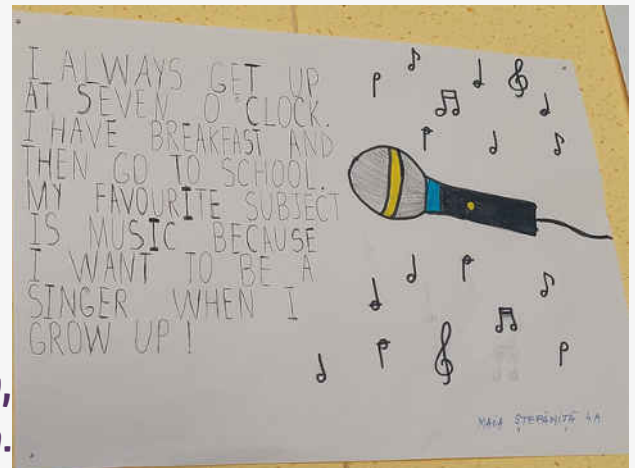 I ALWAYS GET UP
AT SEVEN O'CLOCK.
I HAVE BREAKFAST AND
THEN GO TO SCHOOL.
MY FAVOURITE SUBJECT
IS MUSIC BECAUSE
I WANT TO BE A
SINGER WHEN I
GROW UP!
MAIA ȘTEFĂNIȚĂ 4A